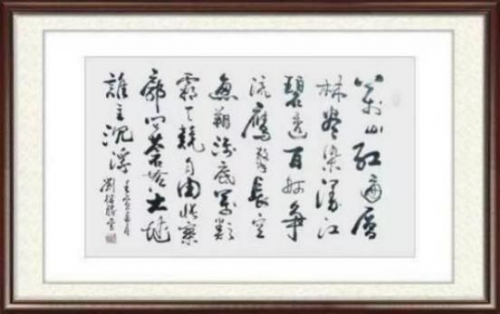 萬山红遍層
林尽染漫江
碧透百舸争
流鹰擊長空
魚翔浅底萬類
霜天競自由悵寥
廓问苍茫大地
誰主沉浮